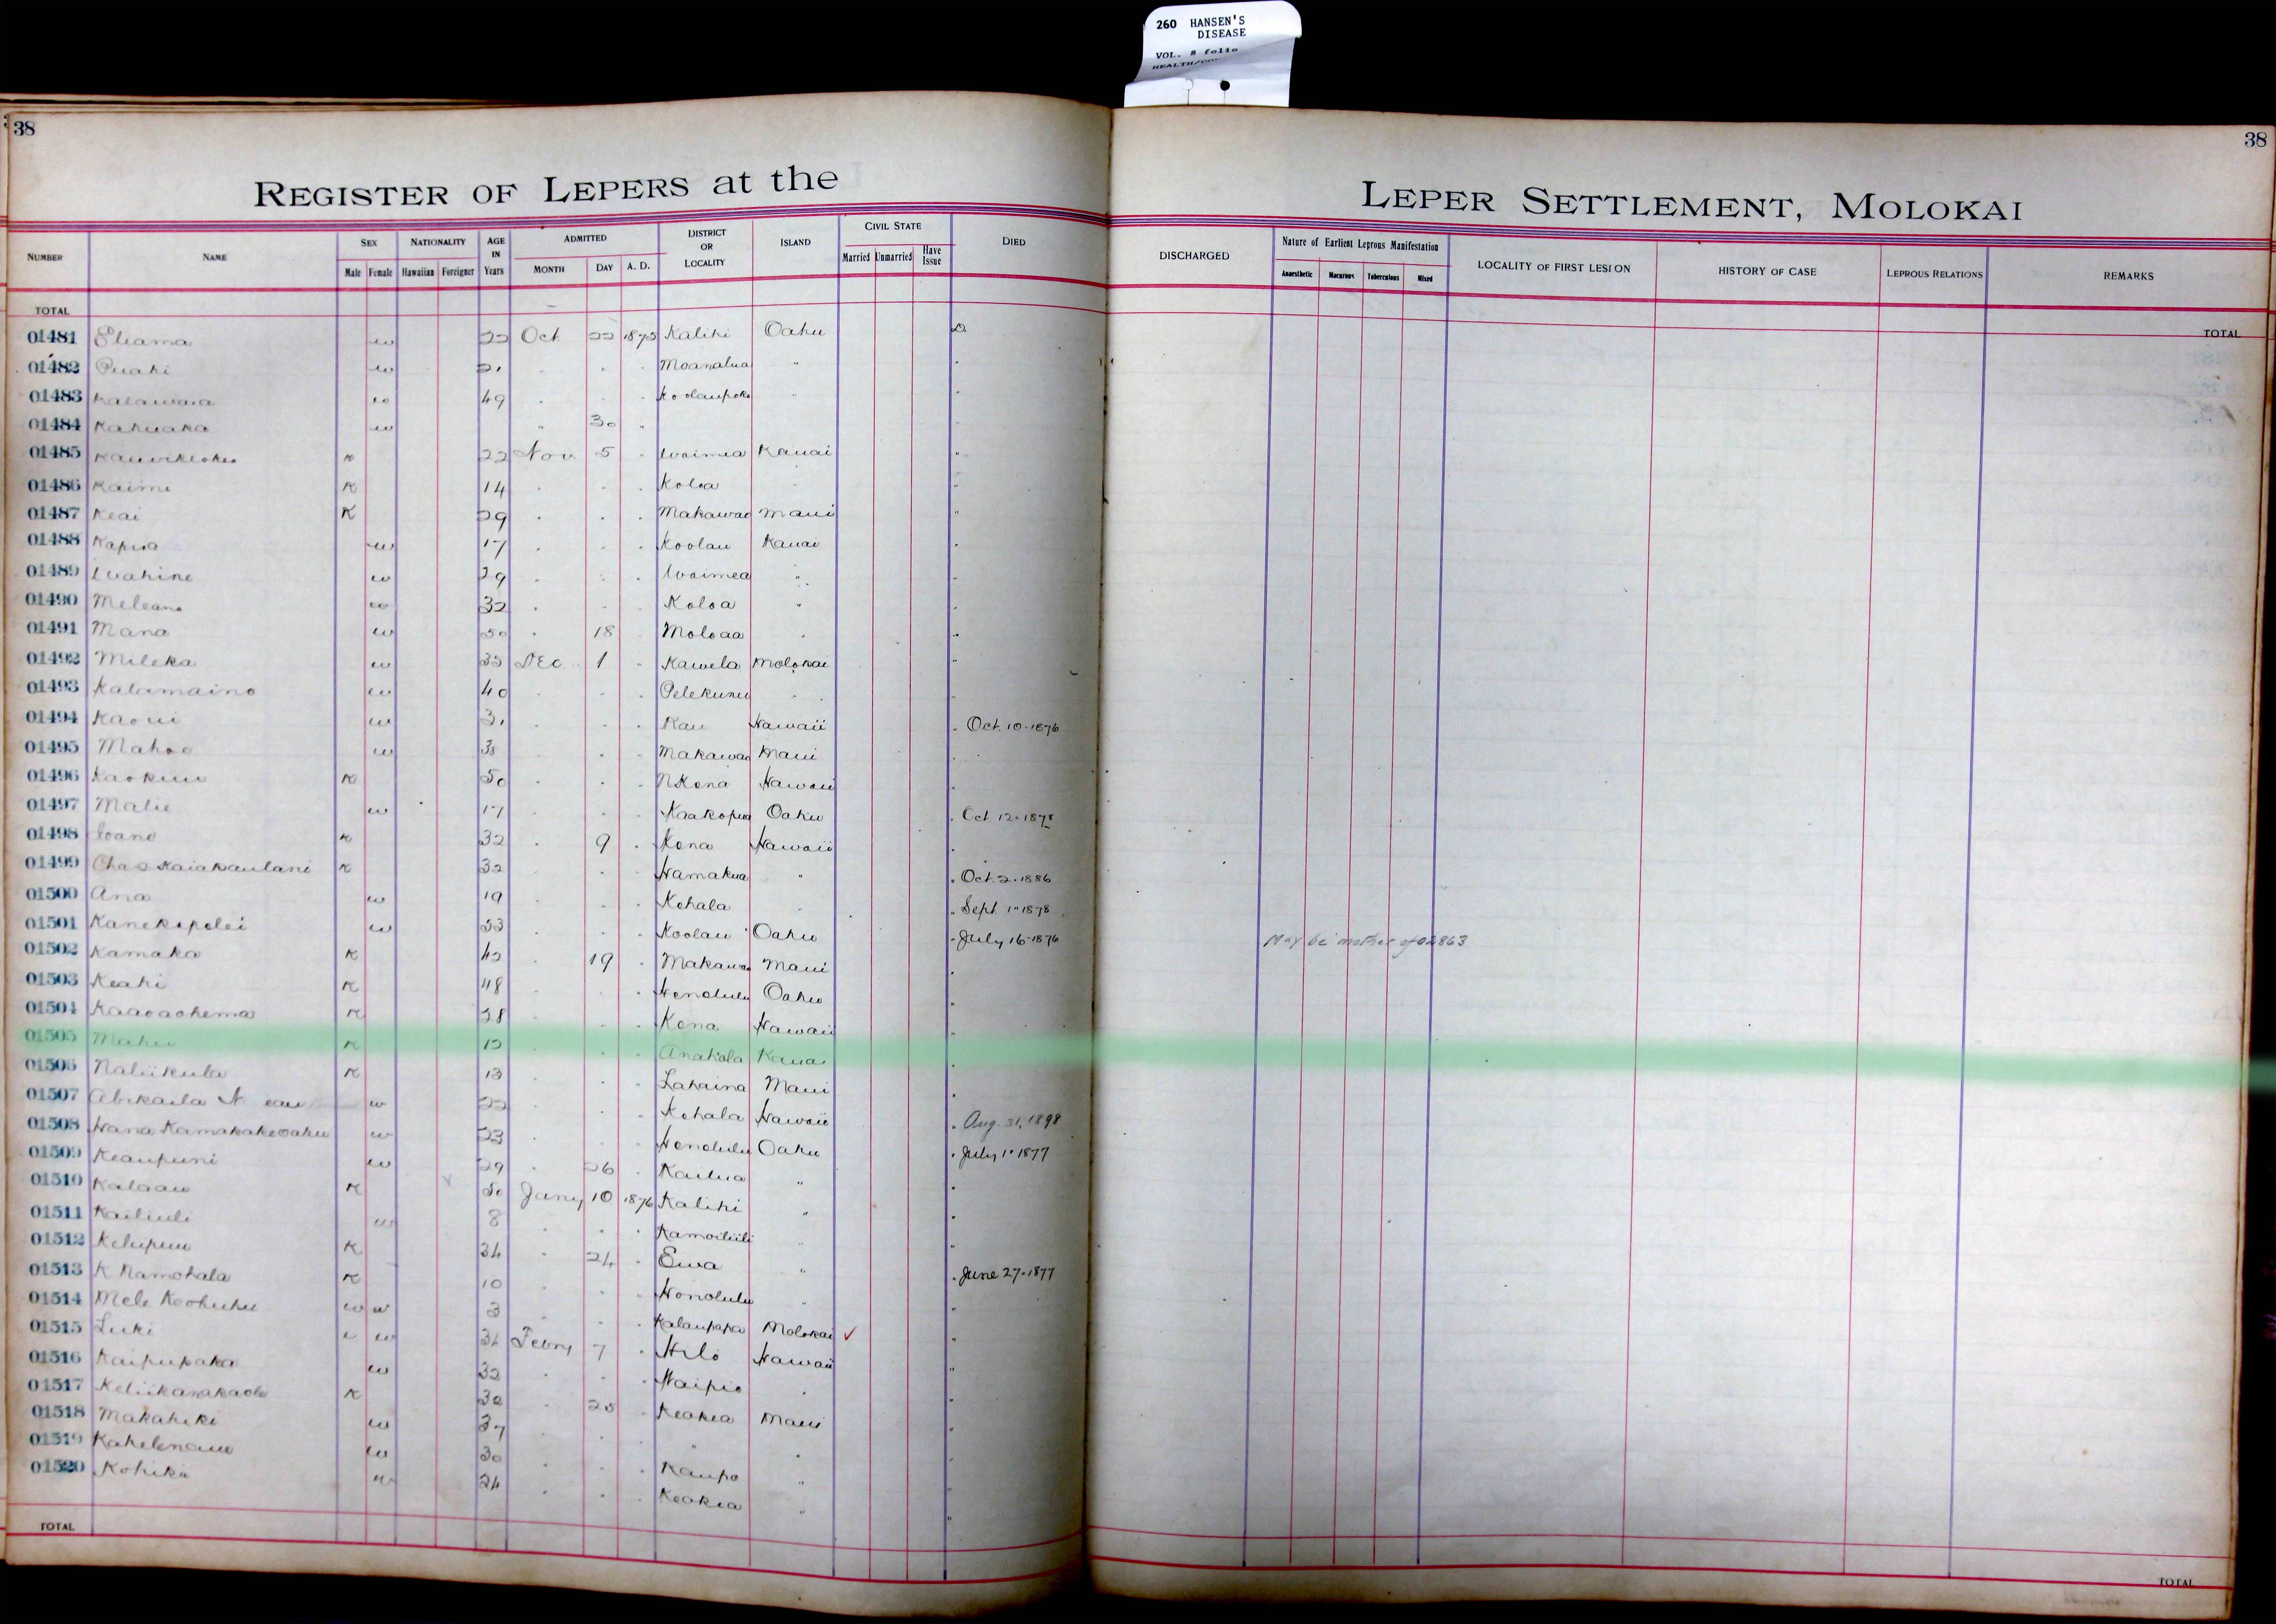 260 HANSEN'S
DISEASE
VOL. 8 folio
38
38
REGISTER OF LEPERS at the LEPER SETTLEMENT, MOLOKAI
NUMBER NAME SEX NATIONALITY AGE IN Years ADMITTED DISTRICT OR LOCALITY ISLAND CIVIL STATE DIED DISCHARGED Nature of Earliest Leprous Manifestation LOCALITY OF FIRST LESION HISTORY OF CASE LEPROUS RELATIONS REMARKS
Male Female Hawaiian Foreigner MONTH DAY A. D. Married Unmarried Have Issue Anaesthetic Macurous Tuberculous Mixed
TOTAL TOTAL
01481 Eliama w 22 Oct 22 1875 Kalihi Oahu D
01482 Puahi w 21 . . . Moanalua " "
01483 Kalawaia w 49 . . . Koolaupoko " "
01484 Kahuaka w " 30 "
01485 w 22 Nov 5 . Waimea Kauai "
01486 Kaimi K 14 . . . Koloa "
01487 Keai K 29 . . . Makawao Maui "
01488 Kapua w 17 . . . Koolau Kauai "
01489 Wahine w 29 . . . Waimea " "
01490 Meleana w 32 . . . Koloa " "
01491 Mana w 50 . 18 Moloaa . "
01492 Mileka w 35 Dec 1 " Kawela Molokai "
01493 Kalamaino w 40 . " . Pelekunu . "
01494 Kaoui w 31 . . . Kau Hawaii " Oct. 10-1876
01495 Mahoe w 38 . . Makawao Maui .
01496 Kaokuu K 50 . . . N Kona Hawaii .
01497 Malie w 17 . . . Kaakopua Oahu . Oct 12-1878
01498 Ioane K 32 . 9 . Kona Hawaii .
01499 Chas Kaiakaulani K 32 . . . Hamakua " . Oct. 2-1886
01500 Ana w 19 . . . Kohala . " Sept 1-1878
01501 Kanekapolei w 53 . . . Koolau Oahu . July 16-1876 May be mother of 02863
01502 Kamaka K 42 . 19 . Makawao Maui "
01503 Keahi K 48 . . . Honolulu Oahu "
01504 Kaaoaohema K 28 . . . Kona Hawaii "
01505 Mahu K 12 . . . Anahola Kauai .
01506 Naliikula K 13 . . . Lahaina Maui .
01507 Abikaila N w 22 . . . Kohala Hawaii . Aug. 31, 1898
01508 Hana Kamakakeoahu w 23 . . . Honolulu Oahu . July 1-1877
01509 Keaupuni w 29 . 26 . Kailua " .
01510 Kalaau K 50 Jany 10 1876 Kalihi " .
01511 Kailiuli w 8 . . . Kamoiliili " "
01512 Kelupuu K 34 . 24 . Ewa " . June 27-1877
01513 K Namohala K 10 . . . Honolulu " "
01514 Mele Keohuhu w w 3 . . . Kalaupapa Molokai ✓ "
01515 Luki w 34 Febry 7 . Hilo Hawaii "
01516 Kaipupaka w 32 . . . Waipio . "
01517 Keliikanakaole K 30 . 20 . Keokea Maui .
01518 Makahiki w 37 . . " . "
01519 Kahelenaue w 30 . . . Kaupo " "
01520 Kohiki w 24 . . . Keokea " "
TOTAL TOTAL